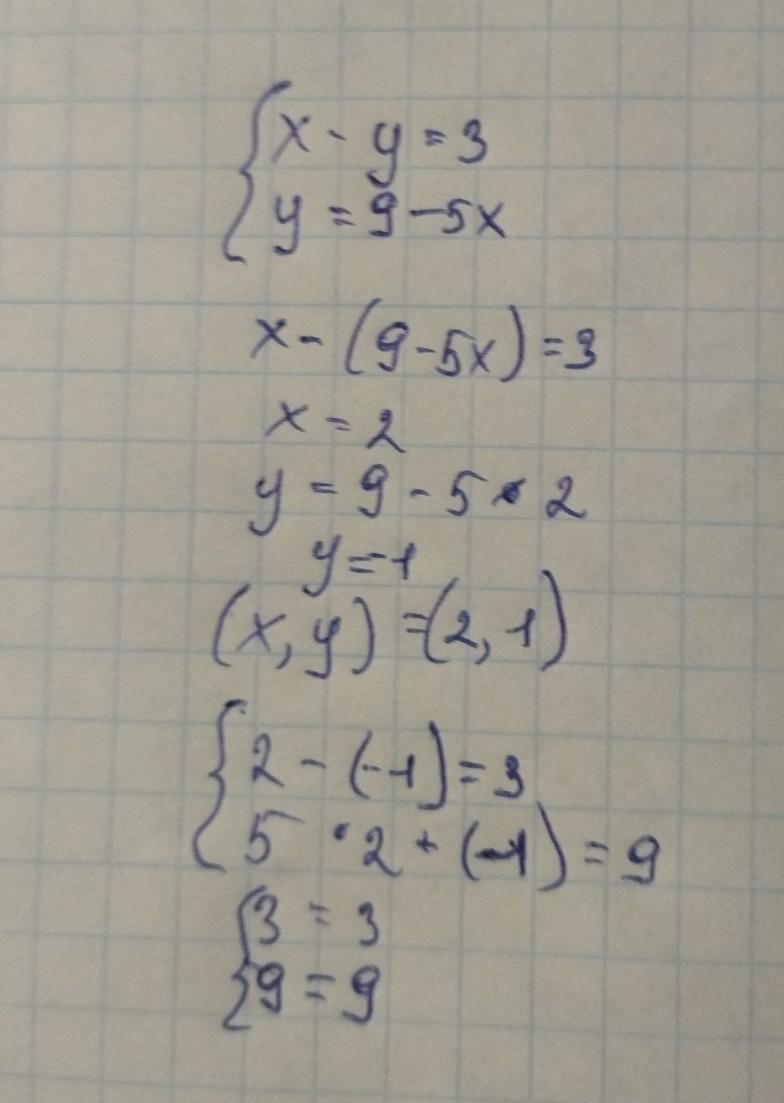 {x - y = 3
y = 9 - 5x
x - (9 - 5x) = 3
x = 2
y = 9 - 5 • 2
y = -1
(x, y) = (2, 1)
{2 - (-1) = 3
5 • 2 + (-1) = 9
{3 = 3
9 = 9